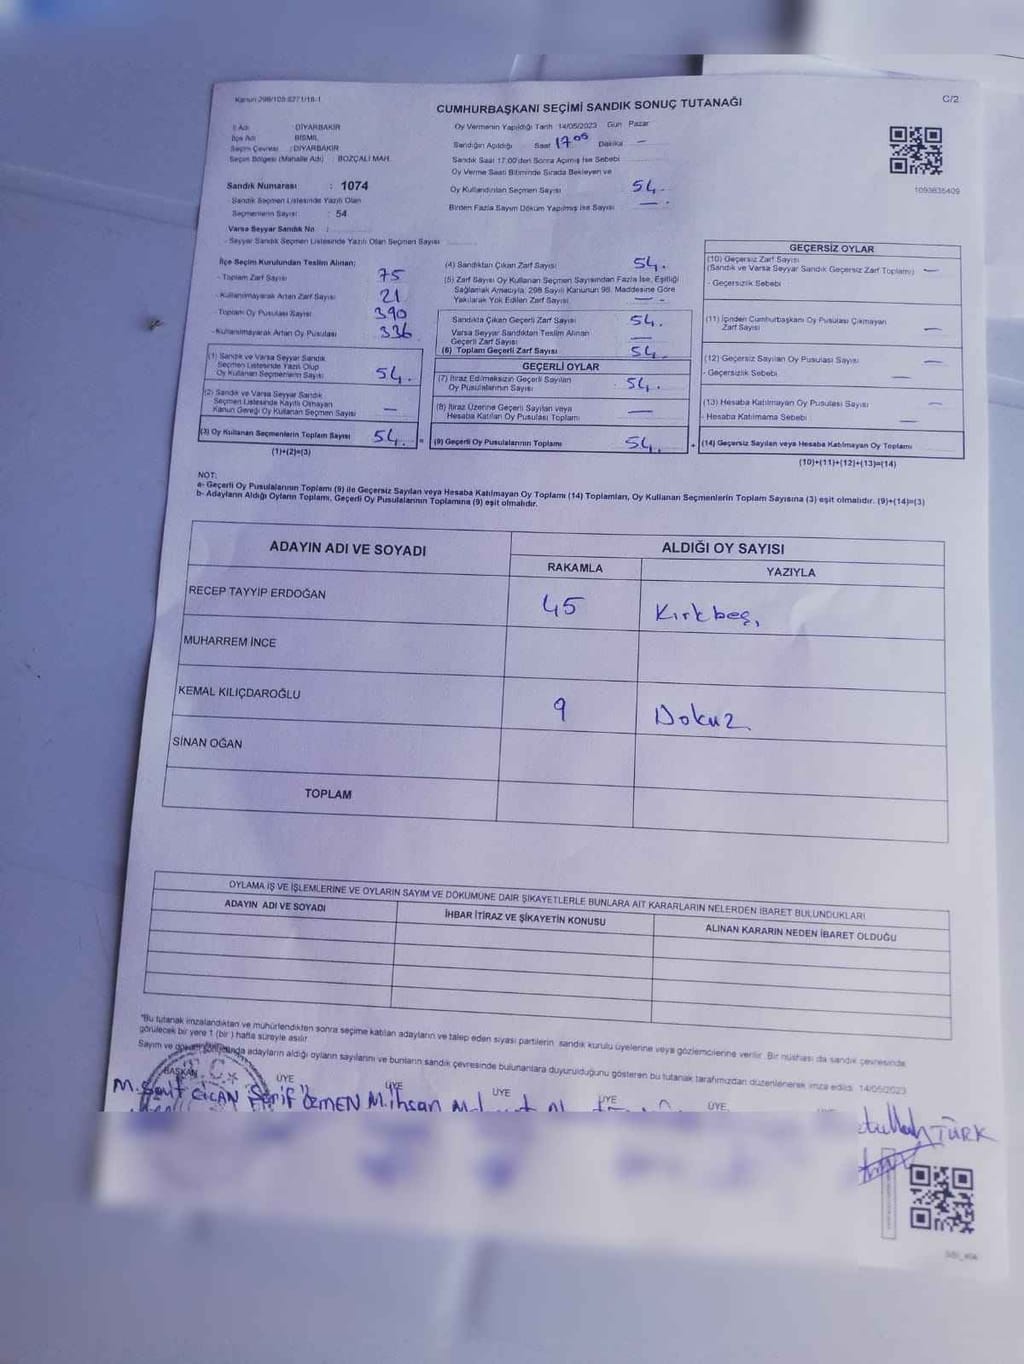 Kanun 298/105-5271/18-1
C/2
CUMHURBAŞKANI SEÇİMİ SANDIK SONUÇ TUTANAĞI
İl Adı : DİYARBAKIR
İlçe Adı : BİSMİL
Seçim Çevresi : DİYARBAKIR
Seçim Bölgesi (Mahalle Adı) : BOZÇALI MAH.
Sandık Numarası : 1074
Sandık Seçmen Listesinde Yazılı Olan
Seçmenlerin Sayısı : 54
Varsa Seyyar Sandık No :
- Seyyar Sandık Seçmen Listesinde Yazılı Olan Seçmen Sayısı
Oy Vermenin Yapıldığı Tarih 14/05/2023 Gün Pazar
Sandığın Açıldığı Saat 17 05 Dakika —
Sandık Saat 17:00'den Sonra Açılmış İse Sebebi
Oy Verme Saati Bitiminde Sırada Bekleyen ve
Oy Kullandırılan Seçmen Sayısı 54 -
Birden Fazla Sayım Döküm Yapılmış İse Sayısı — .
1093835409
İlçe Seçim Kurulundan Teslim Alınan;
- Toplam Zarf Sayısı 75
- Kullanılmayarak Artan Zarf Sayısı 21
- Toplam Oy Pusulası Sayısı 390
- Kullanılmayarak Artan Oy Pusulası 336
(1) Sandık ve Varsa Seyyar Sandık
Seçmen Listesinde Yazılı Olup
Oy Kullanan Seçmenlerin Sayısı 54.
(2) Sandık ve Varsa Seyyar Sandık
Seçmen Listesinde Kayıtlı Olmayan
Kanun Gereği Oy Kullanan Seçmen Sayısı —
(3) Oy Kullanan Seçmenlerin Toplam Sayısı 54. =
(1)+(2)=(3)
(4) Sandıktan Çıkan Zarf Sayısı 54.
(5) Zarf Sayısı Oy Kullanan Seçmen Sayısından Fazla İse, Eşitliği
Sağlamak Amacıyla, 298 Sayılı Kanunun 98. Maddesine Göre
Yakılarak Yok Edilen Zarf Sayısı — -
Sandıkta Çıkan Geçerli Zarf Sayısı 54.
Varsa Seyyar Sandıktan Teslim Alınan
Geçerli Zarf Sayısı —
(6) Toplam Geçerli Zarf Sayısı 54.
GEÇERLİ OYLAR
(7) İtiraz Edilmeksizin Geçerli Sayılan
Oy Pusulalarının Sayısı 54.
(8) İtiraz Üzerine Geçerli Sayılan veya
Hesaba Katılan Oy Pusulası Toplamı —
(9) Geçerli Oy Pusulalarının Toplamı 54. +
GEÇERSİZ OYLAR
(10) Geçersiz Zarf Sayısı
(Sandık ve Varsa Seyyar Sandık Geçersiz Zarf Toplamı) —
- Geçersizlik Sebebi
(11) İçinden Cumhurbaşkanı Oy Pusulası Çıkmayan
Zarf Sayısı —
(12) Geçersiz Sayılan Oy Pusulası Sayısı —
- Geçersizlik Sebebi
(13) Hesaba Katılmayan Oy Pusulası Sayısı —
- Hesaba Katılmama Sebebi —
(14) Geçersiz Sayılan veya Hesaba Katılmayan Oy Toplamı
(10)+(11)+(12)+(13)=(14)
NOT:
a- Geçerli Oy Pusulalarının Toplamı (9) ile Geçersiz Sayılan veya Hesaba Katılmayan Oy Toplamı (14) Toplamları, Oy Kullanan Seçmenlerin Toplam Sayısına (3) eşit olmalıdır. (9)+(14)=(3)
b- Adayların Aldığı Oyların Toplamı, Geçerli Oy Pusulalarının Toplamına (9) eşit olmalıdır.
ADAYIN ADI VE SOYADI
ALDIĞI OY SAYISI
RAKAMLA
YAZIYLA
RECEP TAYYİP ERDOĞAN 45 Kırkbeş,
MUHARREM İNCE
KEMAL KILIÇDAROĞLU 9 Dokuz
SİNAN OĞAN
TOPLAM
OYLAMA İŞ VE İŞLEMLERİNE VE OYLARIN SAYIM VE DÖKÜMÜNE DAİR ŞİKAYETLERLE BUNLARA AİT KARARLARIN NELERDEN İBARET BULUNDUKLARI
ADAYIN ADI VE SOYADI
İHBAR İTİRAZ VE ŞİKAYETİN KONUSU
ALINAN KARARIN NEDEN İBARET OLDUĞU
*Bu tutanak imzalandıktan ve mühürlendikten sonra seçime katılan adayların ve talep eden siyasi partilerin sandık kurulu üyelerine veya gözlemcilerine verilir. Bir nüshası da sandık çevresinde
görülecek bir yere 1 (bir) hafta süreyle asılır
Sayım ve döküm sonucunda adayların aldığı oyların sayılarını ve bunların sandık çevresinde bulunanlara duyurulduğunu gösteren bu tutanak tarafımızdan düzenlenerek imza edildi. 14/05/2023
BAŞKAN ÜYE ÜYE ÜYE ÜYE ÜYE
M. Sait CİCAN Şerif ÖZMEN M. ihsan
TÜRK